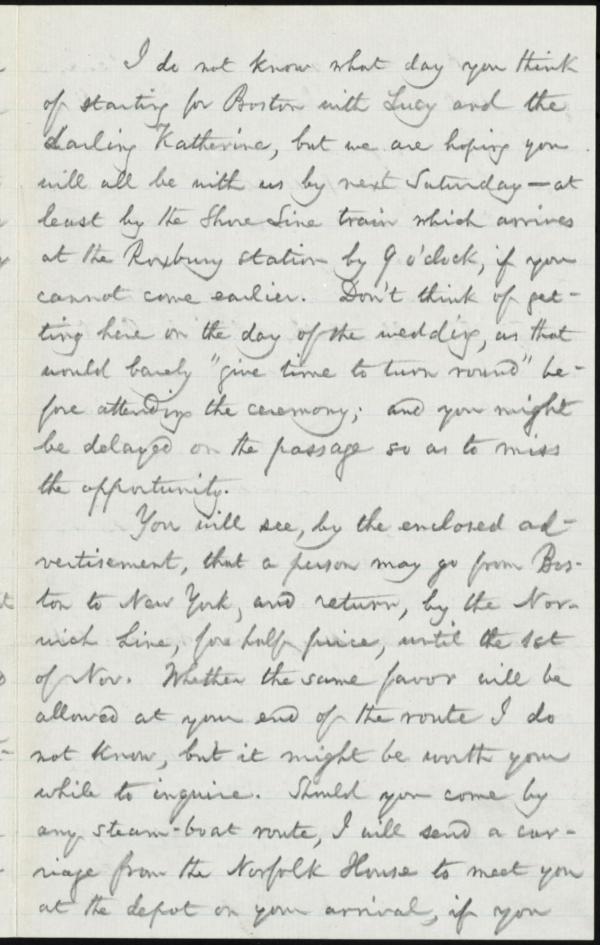 I do not know what day you think
of starting for Boston with Lucy and the
darling Katherine, but we are hoping you
will all be with us by next Saturday — at
least by the Shore Line train which arrives
at the Roxbury station by 9 o'clock, if you
cannot come earlier. Don't think of get-
ting here on the day of the wedding, as that
would barely "give time to turn round" be-
fore attending the ceremony; and you might
be delayed on the passage so as to miss
the opportunity.
You will see, by the enclosed ad-
vertisement, that a person may go from Bos-
ton to New York, and return, by the Nor-
wich Line, for half price, until the 1st
of Nov. Whether the same favor will be
allowed at your end of the route I do
not know, but it might be worth your
while to inquire. Should you come by
any steam-boat route, I will send a car-
riage from the Norfolk House to meet you
at the depot on your arrival, if you